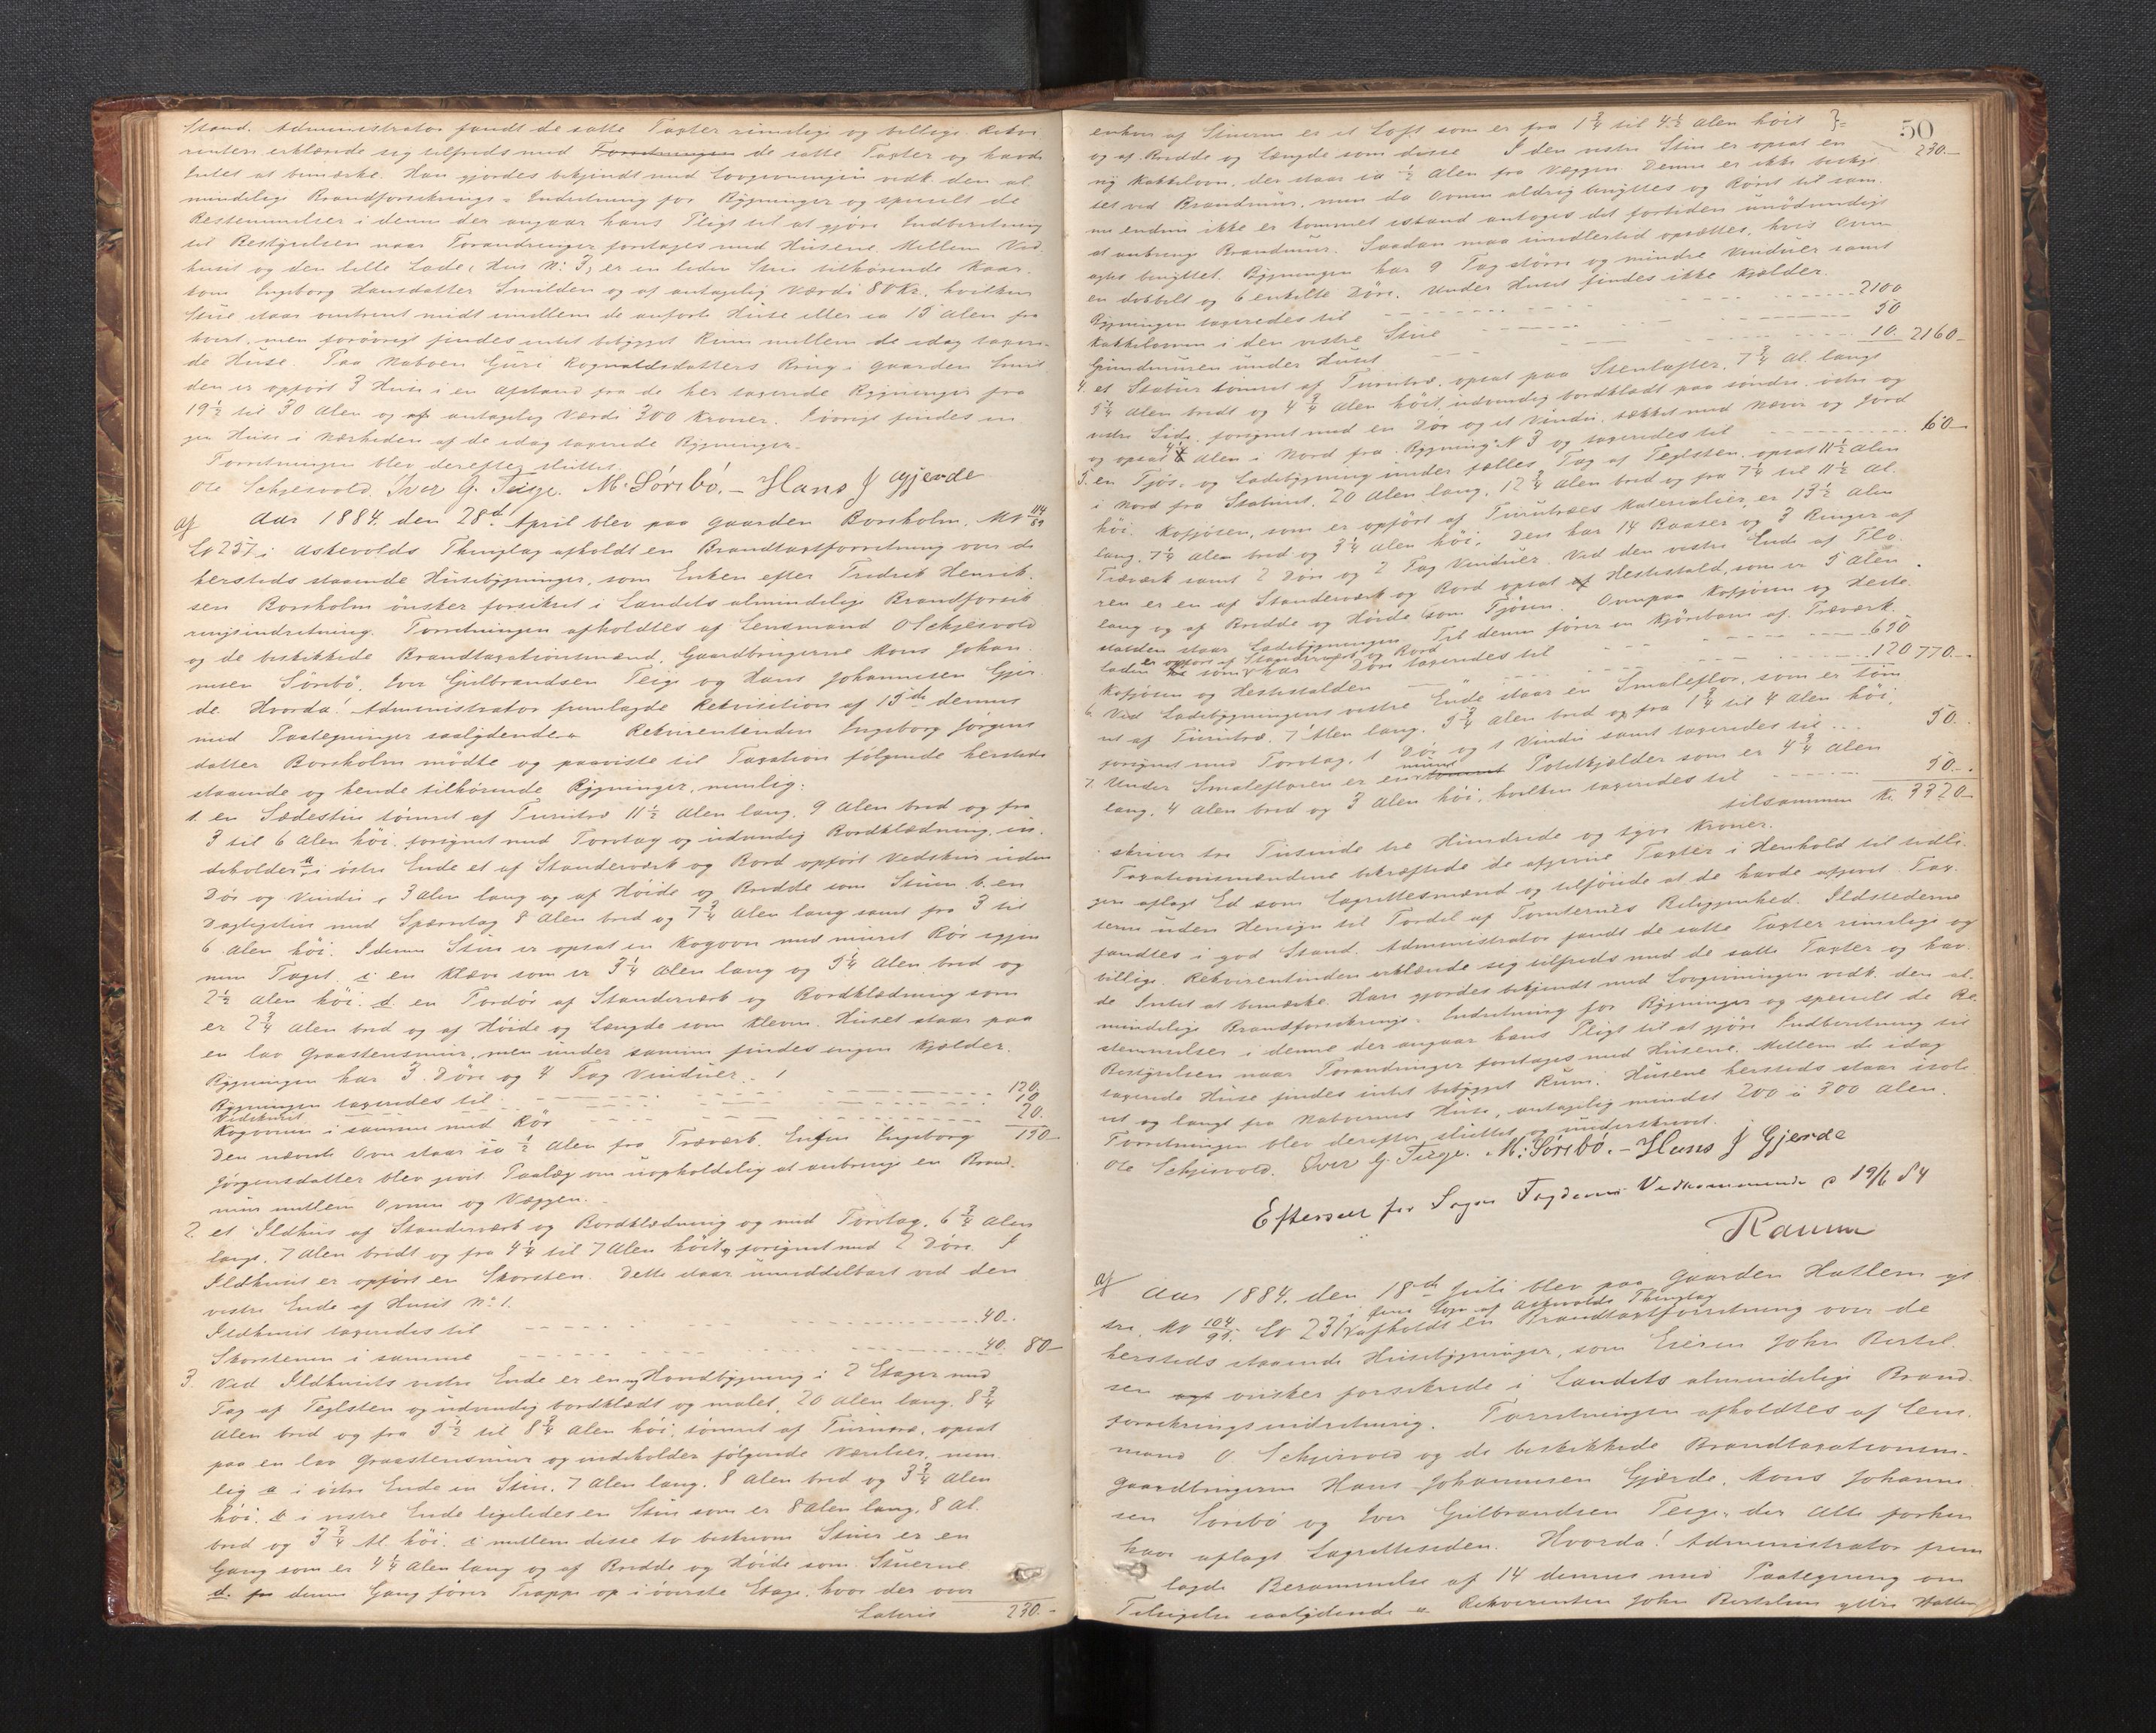 Stand. Administrator fandt de satte Taxter rimelige og billige. Rekvi
renten erklærede sig tilfreds med Forretningen de satte Taxter og havde
Intet at bemærke. Han gjordes bekjendt med Lovgivningen vedk. den al
mindelige Brandforsikrings-Indretning for Bygninger og specielt de
Bestemmelser i denne der angaar hans Pligt til at gjøre Indberetning
til Bestyrelsen naar Forandringer foretages med Husene. Mellem Ved
huset og den lille Lade, Hus No: 3, er en liden Stue tilhørende Kaar-
kone Ingeborg Hansdatter Smilden og af antagelig Værdi 80 Kr. hvilken
Stue staar omtrent midt imellem de anførte Huse eller ca 15 Alen fra
hvert, men forøvrigt findes intet bebygget Rum mellem de idag taxere-
de Huse. Paa Naboen Guri Rognaldsdatters Brug i Gaarden Smil
den er opført 3 Huse i en Afstand fra de her taxerede Bygninger fra
19½ til 30 Alen og af antagelig Værdi 300 Kroner. Iøvrigt findes in
gen Huse i Nærheden af de idag taxerede Bygninger.
Forretningen blev derefter sluttet.
Ole Schjesvold. Iver G. Teige. M: Sørebø. - Hans J Gjerde
af Aar 1884, den 28d April blev paa Gaarden Borsholm, MN 114/89
Lv 257 i Askevolds Thinglag afholdt en Brandtaxtforretning over de
hersteds staaende Husebygninger, som Enken efter Fredrik Henrik-
sen Borsholm ønsker forsikret i Landets almindelige Brandforsik
ringsindretning. Forretningen afholdtes af Lensmand O Schjesvold
og de beskikkede Brandtaxationsmænd, Gaardbrugerne Mons Johan-
nesen Sørebø, Iver Gulbrandsen Teige og Hans Johannesen Gjer
de. Hvorda! Administrator fremlagde Rekvisition af 15de dennes
med Paategninger saalydende Rekvirentinden Ingeborg Jørgens
datter Borsholm mødte og paaviste til Taxation følgende hersteds
staaende og hende tilhørende Bygninger, nemlig:
1. en Sædestue tømret af Furutræ 11½ Alen lang, 9 Alen bred og fra
3 til 6 Alen høi, forsynet med Torvtag og udvendig Bordklædning, in-
deholder a i østre Ende et af Standerværk og Bord opført Vedskur uden
Dør og Vindu, 3 Alen lang og af Høide og Bredde som Stuen b. en
Dagligstue med Spærretag 8 Alen bred og 7¾ Alen lang samt fra 3 til
6 Alen høi. I denne Stue er opsat en Kogovn med muret Rør igjen
nem Taget. c en Kleve som er 3¼ Alen lang og 5¼ Alen bred og
2½ Alen høi. d. en Fordør af Standerværk og Bordklædning som
er 2¾ Alen bred og af Høide og Længde som Kleven. Huset staar paa
en lav Graastensmur, men under samme findes ingen Kjælder.
Bygningen har 3 Døre og 4 Fag Vinduer.
Bygningen taxeredes til 120
Vedskuret 10
Kogovnen i samme med Rør 20. 150
Den nævnte Ovn staar ca ½ Alen fra Træværk. Enken Ingeborg
Jørgensdatter blev givet Paalæg om uopholdelig at anbringe en Brand-
mur mellem Ovnen og Væggen.
2. et Ildhus af Standerværk og Bordklædning og med Torvtag, 6¾ Alen
langt, 7 Alen bredt og fra 4¼ til 7 Alen høit, forsynet med 2 Døre. I
Ildhuset er opført en Skorsten. Dette staar umiddelbart ved den
vestre Ende af Huset No. 1.
Ildhuset taxeredes til 40.
Skorstenen i samme 40. 80
3. Ved Ildhusets vestre Ende er en ny Hovedbygning i 2 Etager med
Tag af Teglsten og udvendig bordklædt og malet, 20 Alen lang, 8¾
Alen bred og fra 5½ til 8¾ Alen høi, tømret af Furutræ, opsat
paa en lav Graastensmur og indeholder følgende Værelser, nem
lig a i østre Ende en Stue, 7 Alen lang, 8 Alen bred og 3¾ Alen
høi. b i vestre Ende ligeledes en Stue som er 8 Alen lang, 8 Al.
bred og 3¾ Al. høi. c mellem disse to beskrevne Stuer er en
Gang som er 4¼ Alen lang og af Bredde og Høide som Stuerne
d. fra denne Gang fører Trappe op i øverste Etage, hvor der over
Lateris 230.-
50
enhver af Stuerne er et Loft som er fra 1¾ til 4½ Alen høit
og af Bredde og Længde som disse. I den vestre Stue er opsat en 230.-
ny Kakkelovn, der staar ca ½ Alen fra Væggen. Denne er ikke beskyt
tet ved Brandmur, men da Ovnen aldrig benyttes og Røret til sam-
me endnu ikke er kommet istand antoges det fortiden unødvendigt
at anbringe Brandmur. Saadan maa imidlertid opsættes, hvis Ovnen
agtes benyttet. Bygningen har 9 Fag større og mindre Vinduer samt
en dobbelt og 6 enkelte Døre. Under Huset findes ikke Kjælder.
Bygningen taxeredes til 2100
Kakkelovnen i den vestre Stue 50
Grundmuren under Huset 10. 2160-
4. et Stabur tømret af Furutræ, opsat paa Stenløfter, 7¾ Al. langt
5¼ Alen bredt og 4¾ Alen høit, udvendig bordklædt paa søndre, østre og
vestre Side, forsynet med en Dør og et Vindu, tækket med Næver og Jord
og opsat 4½ Alen i Nord fra Bygning N 3 og taxeredes til 160-
5. en Fjøs- og Ladebygning under fælles Tag af Teglsten, opsat 11½ Alen
i Nord fra Staburet, 20 Alen lang, 12¾ Alen bred og fra 7¼ til 11½ Al.
høi. Kofjøsen, som er opført af Furutræes Materialier, er 13½ Alen
lang, 7¼ Alen bred og 3¼ Alen høi. Den har 14 Baaser og 3 Binger af
Træværk samt 2 Døre og 2 Fag Vinduer. Ved den vestre Ende af Flo-
ren er en af Standerværk og Bord opsat Hestestald, som er 5 Alen
lang og af Bredde og Høide som Fjøsen. Ovenpaa Kofjøsen og Heste-
stalden staar Ladebygningen. Til denne fører en Kjørebane af Træværk.
er opført af Standerværk og Bord
Laden som har Døre taxeredes til 650
Kofjøsen og Hestestalden 120 770.-
6. Ved Ladebygningens vestre Ende staar en Smaleflor, som er tøm
ret af Furutræ, 7 Alen lang, 5¾ Alen bred og fra 1¾ til 4 Alen høi,
forsynet med Torvtag, 1 Dør og 1 Vindu samt taxeredes til 50.
7. Under Smalefloren er en muret Potetkjælder som er 4¾ Alen
lang, 4 Alen bred og 3 Alen høi, hvilken taxeredes til 50.
tilsammen Kr. 3320-
skriver tre Tusinde tre Hundrede og tyve Kroner.
Taxationsmændene bekræftede de afgivne Taxter i Henhold til tidli-
gere aflagt Ed som Lagrettesmænd og tilføiede at de havde afgivet Tax-
terne uden Hensyn til Fordel af Tomternes Beliggenhed. Ildstederne
fandtes i god Stand. Administrator fandt de satte Taxter rimelige og
billige. Rekvirentinden erklærede sig tilfreds med de satte Taxter og hav-
de Intet at bemærke. Han gjordes bekjendt med Lovgivningen vedk. den al-
mindelige Brandforsikrings-Indretning for Bygninger og specielt de Be-
stemmelser i denne der angaar hans Pligt til at gjøre Indberetning til
Bestyrelsen naar Forandringer foretages med Husene. Mellem de idag
taxerede Huse findes intet bebygget Rum. Husene hersteds staar isole-
ret og langt fra Naboernes Huse, antagelig mindst 200 à 300 Alen.
Forretningen blev derefter sluttet og underskrevet.
Ole Schjesvold. Iver G. Teige. M: Sørebø. - Hans J Gjerde
Efterseet for Sogns Fogderies Vedkommende 19/6 84
Raum
af Aar 1884, den 18de Juli blev paa Gaarden Hatlem yt
i Gens Sogn af Askevolds Thinglag
tre, MN 104/95, Lv 231 afholdt en Brandtaxtforretning over de
hersteds staaende Husebygninger, som Eieren John Bertel-
sen agt ønsker forsikrede i Landets almindelige Brand-
forsikringsindretning. Forretningen afholdtes af Lens-
mand O. Schjesvold og de beskikkede Brandtaxationsm-
Gaardbrugerne Hans Johannesen Gjærde, Mons Johanne
sen Sørebø og Iver Gulbrandsen Teige, der Alle forhen
have aflagt Lagretteseden. Hvorda! Administrator frem
lagde Berammelse af 14 dennes med Paategning om
Tilsigelse saalydende Rekvirenten John Bertelsen yttre Hatlem